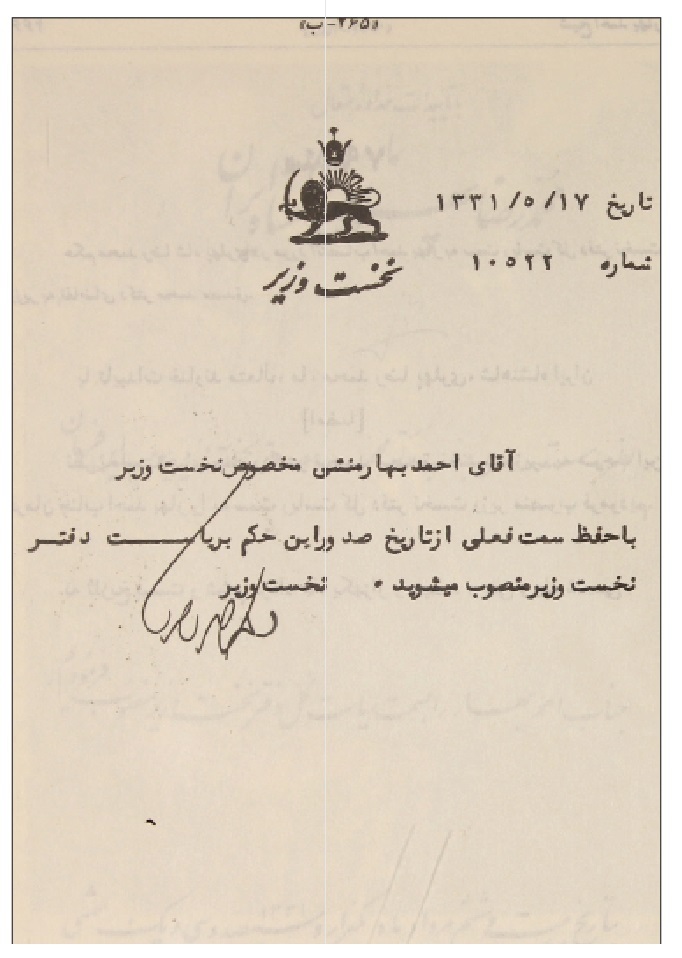 «۲۶۵-ب»
تاریخ ۱۳۳۱/۵/۱۷
شماره ۱۰۵۲۲
نخست وزیر
آقای احمد بهار منشی مخصوص نخست وزیر
با حفظ سمت فعلی از تاریخ صدور این حکم بریاست دفتر
نخست وزیر منصوب میشوید . نخست وزیر